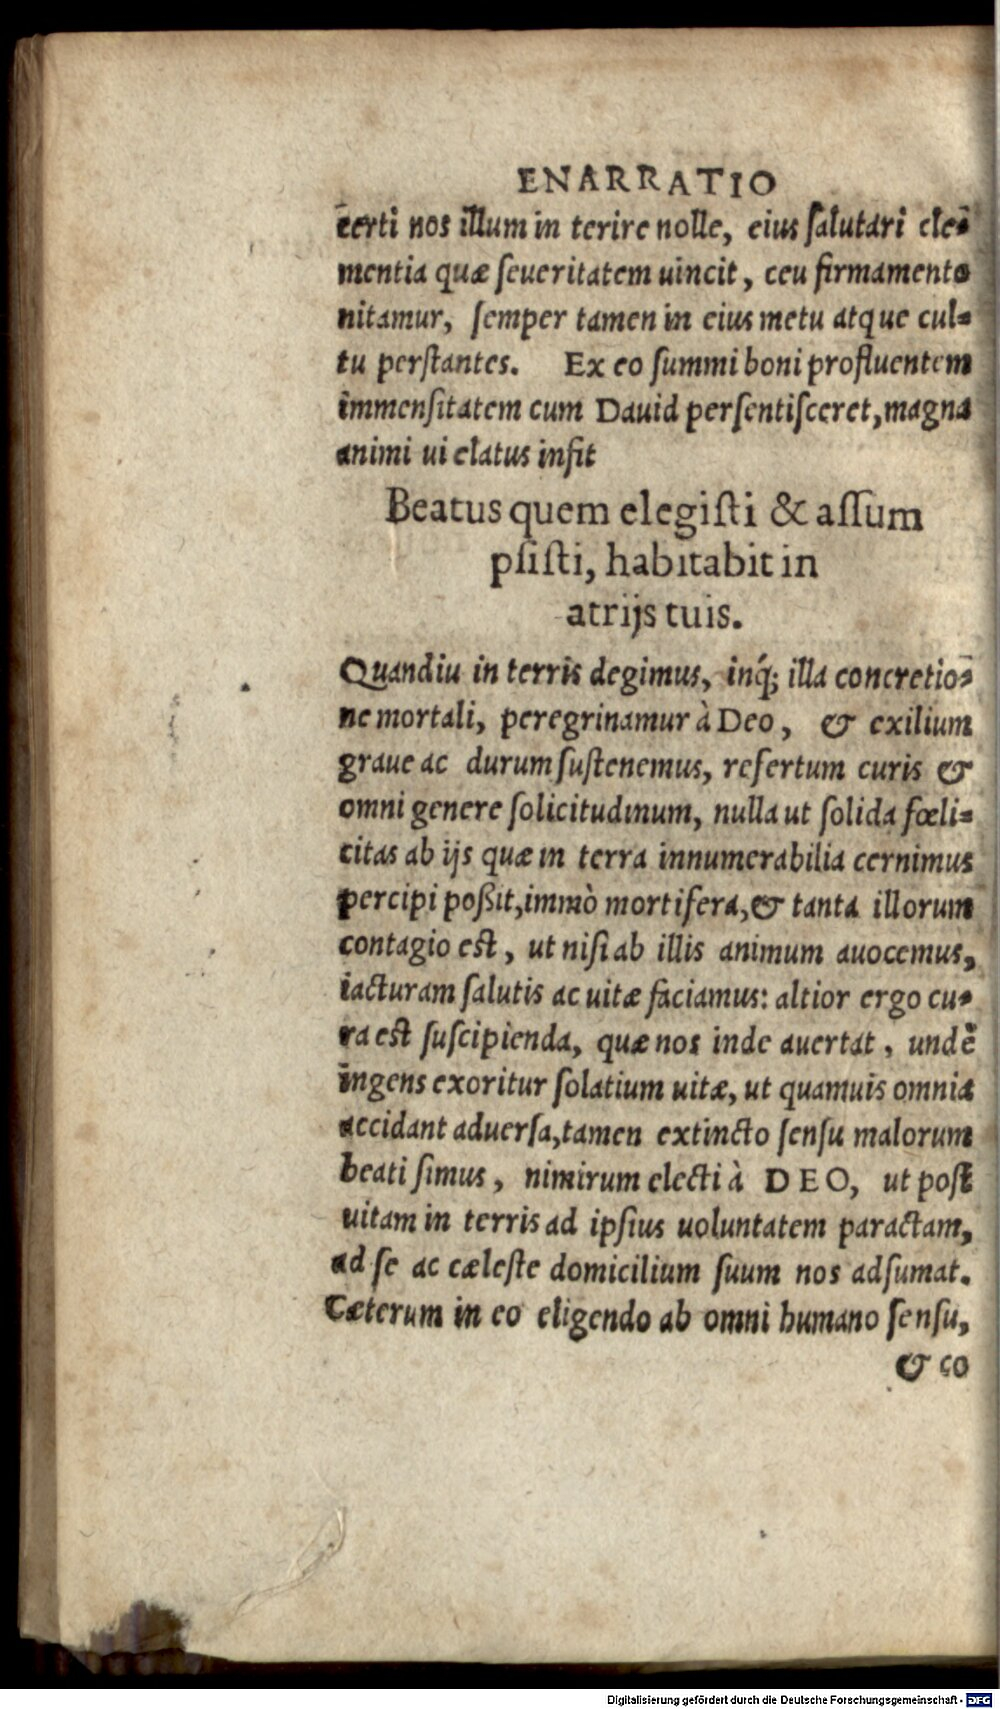 ENARRATIO
certi nos illum in terire nolle, eius ſalutari cle-
mentia quæ ſeueritatem uincit, ceu firmamento
nitamur, ſemper tamen in eius metu atque cul-
tu perſtantes. Ex eo ſummi boni profluentem
immenſitatem cum Dauid perſentiſceret, magna
animi ui elatus inſit
Beatus quem elegiſti & aſſum
pſiſti, habitabit in
atrijs tuis.
Quandiu in terris degimus, inq́; illa concretio-
ne mortali, peregrinamur à Deo, & exilium
graue ac durum ſuſtenemus, refertum curis &
omni genere ſolicitudinum, nulla ut ſolida fœli-
citas ab ijs quæ in terra innumerabilia cernimus
percipi poßit, immò mortifera, & tanta illorum
contagio eſt, ut niſi ab illis animum auocemus,
iacturam ſalutis ac uitæ faciamus: altior ergo cu-
ra eſt ſuſcipienda, quæ nos inde auertat, undè
ingens exoritur ſolatium uitæ, ut quamuis omnia
accidant aduerſa, tamen extincto ſenſu malorum
beati ſimus, nimirum electi à DEO, ut poſt
uitam in terris ad ipſius uoluntatem paractam,
ad ſe ac cæleſte domicilium ſuum nos adſumat.
Cæterum in eo eligendo ab omni humano ſenſu,
& co
Digitalisierung gefördert durch die Deutsche Forschungsgemeinschaft - DFG